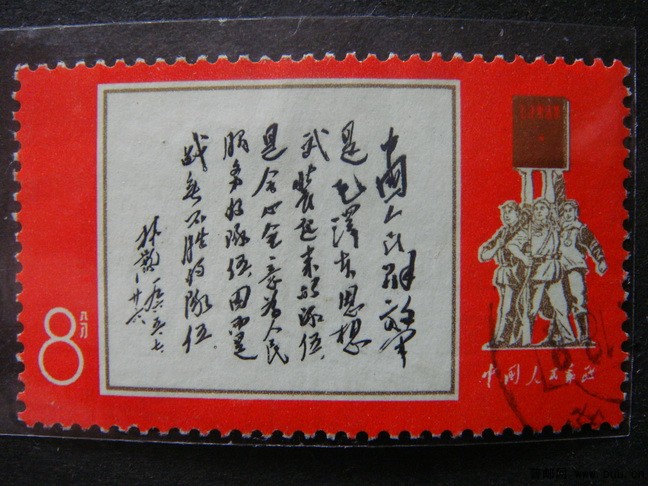 中國人民解放军
是毛澤东思想
武装起来的隊伍,
是全心全意为人民
服务的隊伍,因而是
战无不胜的隊伍。
林彪
一九六五、七、
廿六
8分
中国人民邮政